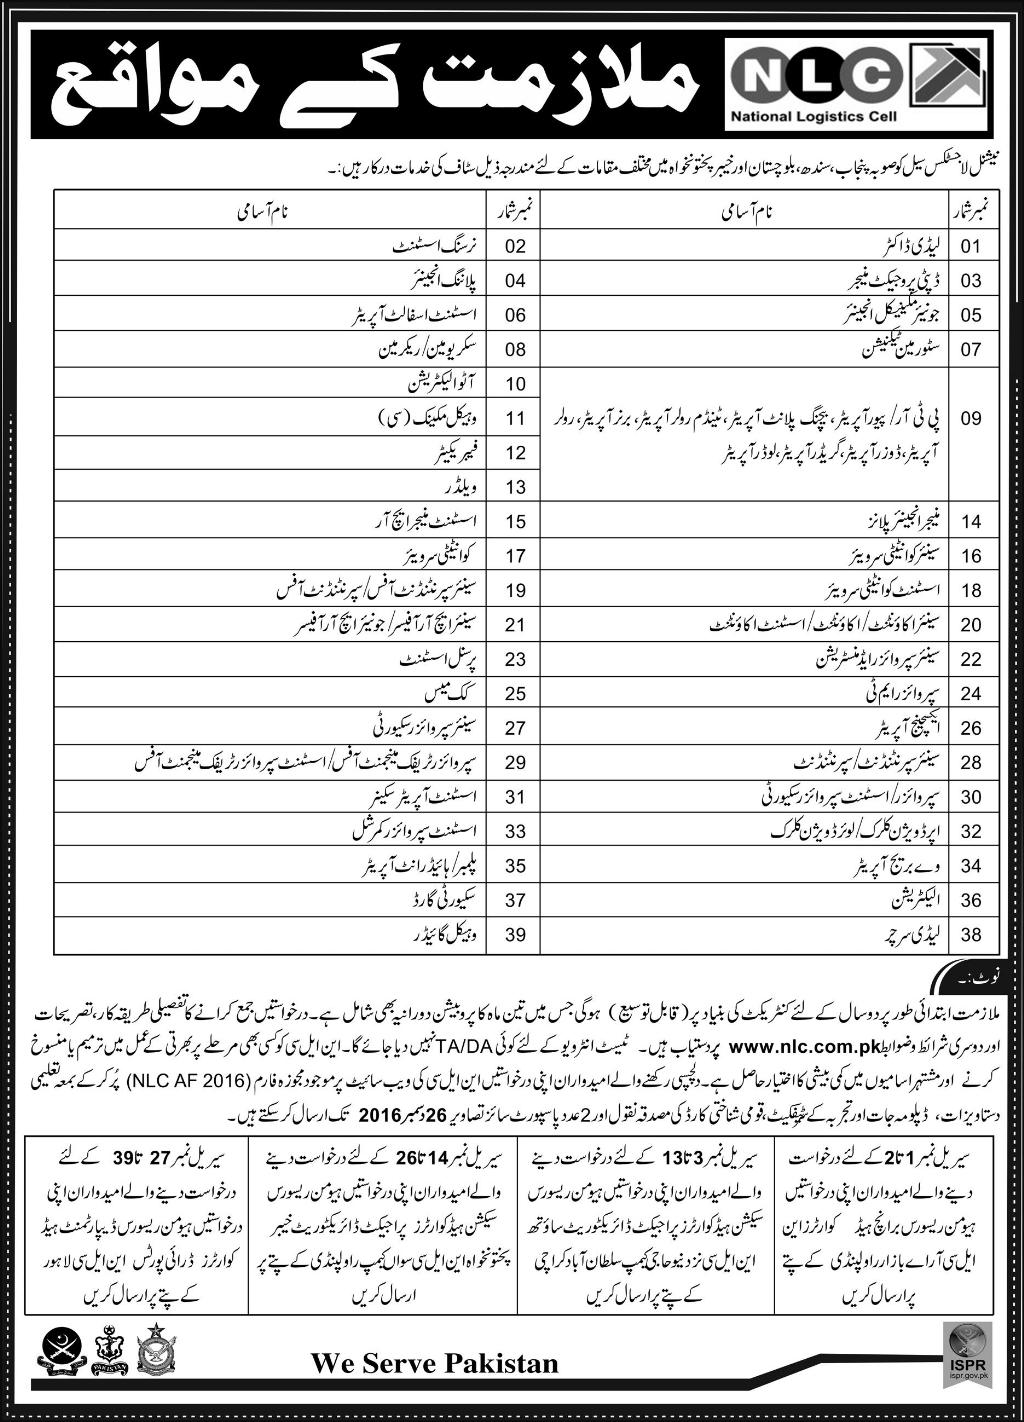 ملازمت کے مواقع
NLC
National Logistics Cell
نیشنل لاجسٹکس سیل کو صوبہ پنجاب، سندھ، بلوچستان اور خیبر پختونخواہ میں مختلف مقامات کے لئے مندرجہ ذیل سٹاف کی خدمات درکار ہیں:۔
نمبر شمار نام آسامی نمبر شمار نام آسامی
01 لیڈی ڈاکٹر 02 نرسنگ اسسٹنٹ
03 ڈپٹی پروجیکٹ منیجر 04 پلاننگ انجینئر
05 جونیئر مکینیکل انجینئر 06 اسسٹنٹ اسفالٹ آپریٹر
07 سٹور مین ٹیکنیشن 08 سکریومین/ریکرمین
09 پی ٹی آر/ پیور آپریٹر، بیچنگ پلانٹ آپریٹر، ٹینڈم رولر آپریٹر، برنر آپریٹر، رولر
آپریٹر، ڈوزر آپریٹر، گریڈر آپریٹر، لوڈر آپریٹر
10 آٹو الیکٹریشن
11 وہیکل مکینک (سی)
12 فیبریکیٹر
13 ویلڈر
14 منیجر انجینئر پلانز 15 اسسٹنٹ منیجر ایچ آر
16 سینئر کوانٹیٹی سرویئر 17 کوانٹیٹی سرویئر
18 اسسٹنٹ کوانٹیٹی سرویئر 19 سینئر سپرنٹنڈنٹ آفس/سپرنٹنڈنٹ آفس
20 سینئر اکاؤنٹنٹ/اکاؤنٹنٹ/اسسٹنٹ اکاؤنٹنٹ 21 سینئر ایچ آر آفیسر/جونیئر ایچ آر آفیسر
22 سینئر سپروائزر ایڈمنسٹریشن 23 پرسنل اسسٹنٹ
24 سپروائزر ایم ٹی 25 کک میس
26 ایکسچینج آپریٹر 27 سینئر سپروائزر سکیورٹی
28 سینئر سپرنٹنڈنٹ/سپرنٹنڈنٹ 29 سپروائزر ٹریفک مینجمنٹ آفس/اسسٹنٹ سپروائزر ٹریفک مینجمنٹ آفس
30 سپروائزر/اسسٹنٹ سپروائزر سکیورٹی 31 اسسٹنٹ آپریٹر سکینر
32 اپر ڈویژن کلرک/لوئر ڈویژن کلرک 33 اسسٹنٹ سپروائزر کمرشل
34 وے بریج آپریٹر 35 پلمبر/ہائیڈرانٹ آپریٹر
36 الیکٹریشن 37 سکیورٹی گارڈ
38 لیڈی سرچر 39 وہیکل گائیڈر
نوٹ:۔
ملازمت ابتدائی طور پر دو سال کے لئے کنٹریکٹ کی بنیاد پر (قابل توسیع) ہوگی جس میں تین ماہ کا پروبیشن دورانیہ بھی شامل ہے۔ درخواستیں جمع کرانے کا تفصیلی طریقہ کار، تصریحات
اور دوسری شرائط و ضوابط www.nlc.com.pk پر دستیاب ہیں۔ ٹیسٹ انٹرویو کے لئے کوئی TA/DA نہیں دیا جائے گا۔ این ایل سی کو کسی بھی مرحلے پر بھرتی کے عمل میں ترمیم یا منسوخ
کرنے اور مشتہر اسامیوں میں کمی بیشی کا اختیار حاصل ہے۔ دلچسپی رکھنے والے امیدواران اپنی درخواستیں این ایل سی کی ویب سائیٹ پر موجود مجوزہ فارم (NLC AF 2016) پُر کر کے بمعہ تعلیمی
دستاویزات، ڈپلومہ جات اور تجربہ کے سرٹیفکیٹ، قومی شناختی کارڈ کی مصدقہ نقول اور 2 عدد پاسپورٹ سائز تصاویر 26 دسمبر 2016 تک ارسال کر سکتے ہیں۔
سیریل نمبر 1 تا 2 کے لئے درخواست
دینے والے امیدواران اپنی درخواستیں
ہیومن ریسورس برانچ ہیڈ کوارٹرز این
ایل سی آر اے بازار راولپنڈی کے پتے
پر ارسال کریں
سیریل نمبر 3 تا 13 کے لئے درخواست دینے
والے امیدواران اپنی درخواستیں ہیومن ریسورس
سیکشن ہیڈ کوارٹرز پراجیکٹ ڈائریکٹوریٹ ساؤتھ
این ایل سی نزد نیو حاجی کیمپ سلطان آباد کراچی
کے پتے پر ارسال کریں
سیریل نمبر 14 تا 26 کے لئے درخواست دینے
والے امیدواران اپنی درخواستیں ہیومن ریسورس
سیکشن ہیڈ کوارٹرز پراجیکٹ ڈائریکٹوریٹ خیبر
پختونخواہ این ایل سی سواں کیمپ راولپنڈی کے پتے پر
ارسال کریں
سیریل نمبر 27 تا 39 کے لئے
درخواست دینے والے امیدواران اپنی
درخواستیں ہیومن ریسورس ڈیپارٹمنٹ ہیڈ
کوارٹرز ڈرائی پورٹس این ایل سی لاہور
کے پتے پر ارسال کریں
We Serve Pakistan
ISPR
ispr.gov.pk